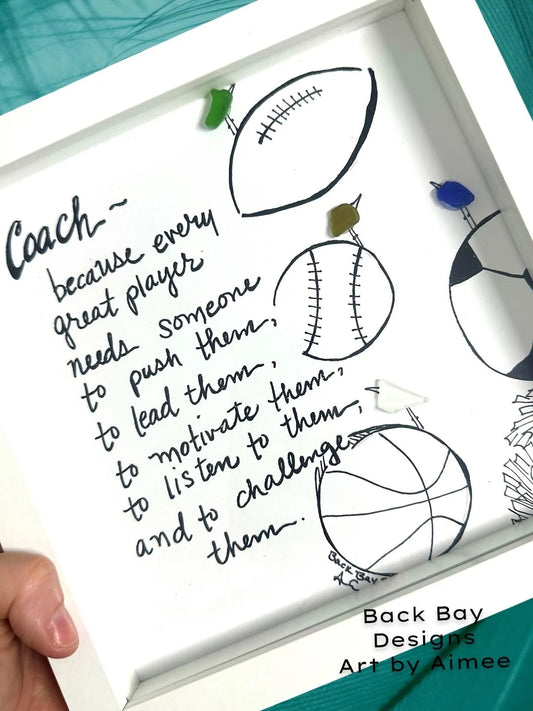 Coach~
because every
great player
needs someone
to push them,
to lead them,
to motivate them,
to listen to them,
and to challenge
them.
Back Bay
A E
Back Bay
Designs
Art by Aimee